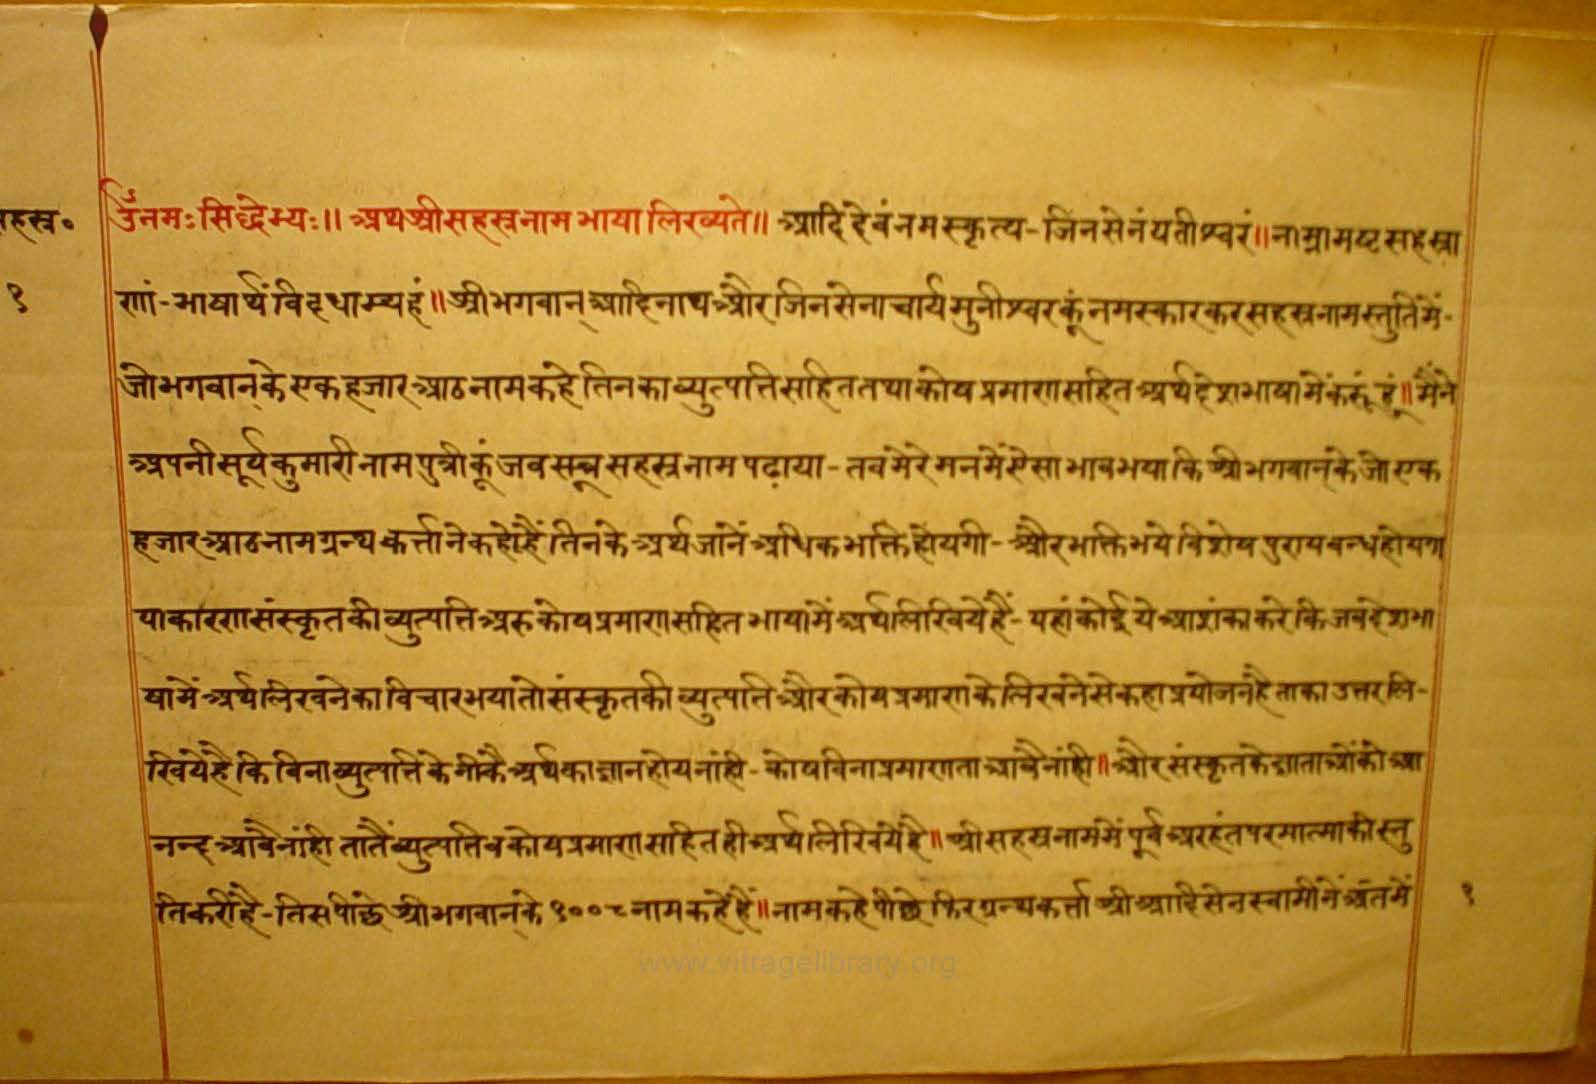 सहस्र॰
ॐनमःसिद्धेभ्यः॥ अथश्रीसहस्रनामभाषालिख्यते॥ आदिदेवंनमस्कृत्य-जिनसेनंयतीश्वरं॥नाम्नामष्टसहस्रा
१
णां-भाषार्थंविदधाम्यहं॥ श्रीभगवान्आदिनाथऔरजिनसेनाचार्यमुनीश्वरकूंनमस्कारकरसहस्रनामस्तुतिमें-
जोभगवान्केएकहजारआठनामकहेतिनकाव्युत्पत्तिसहिततथाकोषप्रमाणसहितअर्थदेशभाषामेंकरूंहूं॥मैंने
अपनीसूर्यकुमारीनामपुत्रीकूंजबसहस्रनामपढ़ाया-तबमेरेमनमेंऐसाभावभयाकिश्रीभगवान्केजोएक
हजारआठनामग्रन्थकर्त्तानेकहेहैंतिनकेअर्थजानेंअधिकभक्तिहोयगी-औरभक्तिभयेविशेषपुण्यबन्धहोयगा
याकारणसंस्कृतकीव्युत्पत्तिअरुकोषप्रमाणसहितभाषामेंअर्थलिखियेहैं-यहांकोईयेआशंकाकरेकिजबदेशभा
षामेंअर्थलिखनेकाविचारभयातोसंस्कृतकीव्युत्पत्तिऔरकोषप्रमाणकेलिखनेसेकहाप्रयोजनहैताकाउत्तरलि-
खियेहैकिबिनाव्युत्पत्तिकेनीकैअर्थकाज्ञानहोयनांही-कोषबिनाप्रमाणताआवैनांही॥औरसंस्कृतकेज्ञाताओंकोआ
नन्दआवैनांहीतातैंव्युत्पत्तिवकोषप्रमाणसहितहीअर्थलिखियेहै॥ श्रीसहस्रनाममेंपूर्वअरहंतपरमात्माकीस्तु
तिकरीहै-तिसपीछेश्रीभगवान्के१००८नामकहेहैं॥नामकहेपीछेफिरग्रन्थकर्त्ताश्रीआदिसेनस्वामीनेंअंतमें
१
www.vitragelibrary.org